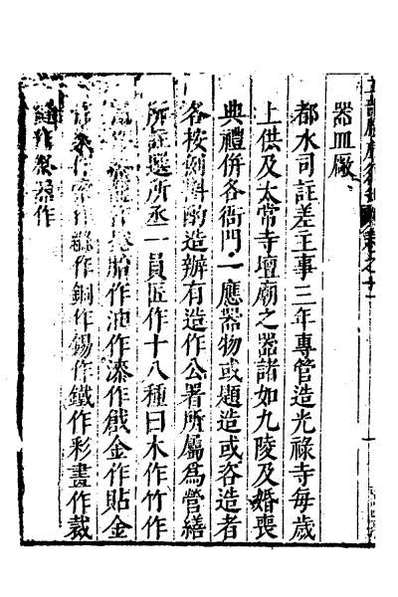 卷之十一
器皿廠
都水司註差主事三年專管造光祿寺每歲
上供及太常寺壇廟之器諸如九陵及婚喪
典禮併各衙門一應器物或題造或咨造者
各按例料酌造辦有造作公署所屬為營繕
所註選所丞一員匠作十八種曰木作竹作
作捲胎作油作漆作戧金作貼金
作銅作錫作鐵作彩畫作裁
縫作祭器作